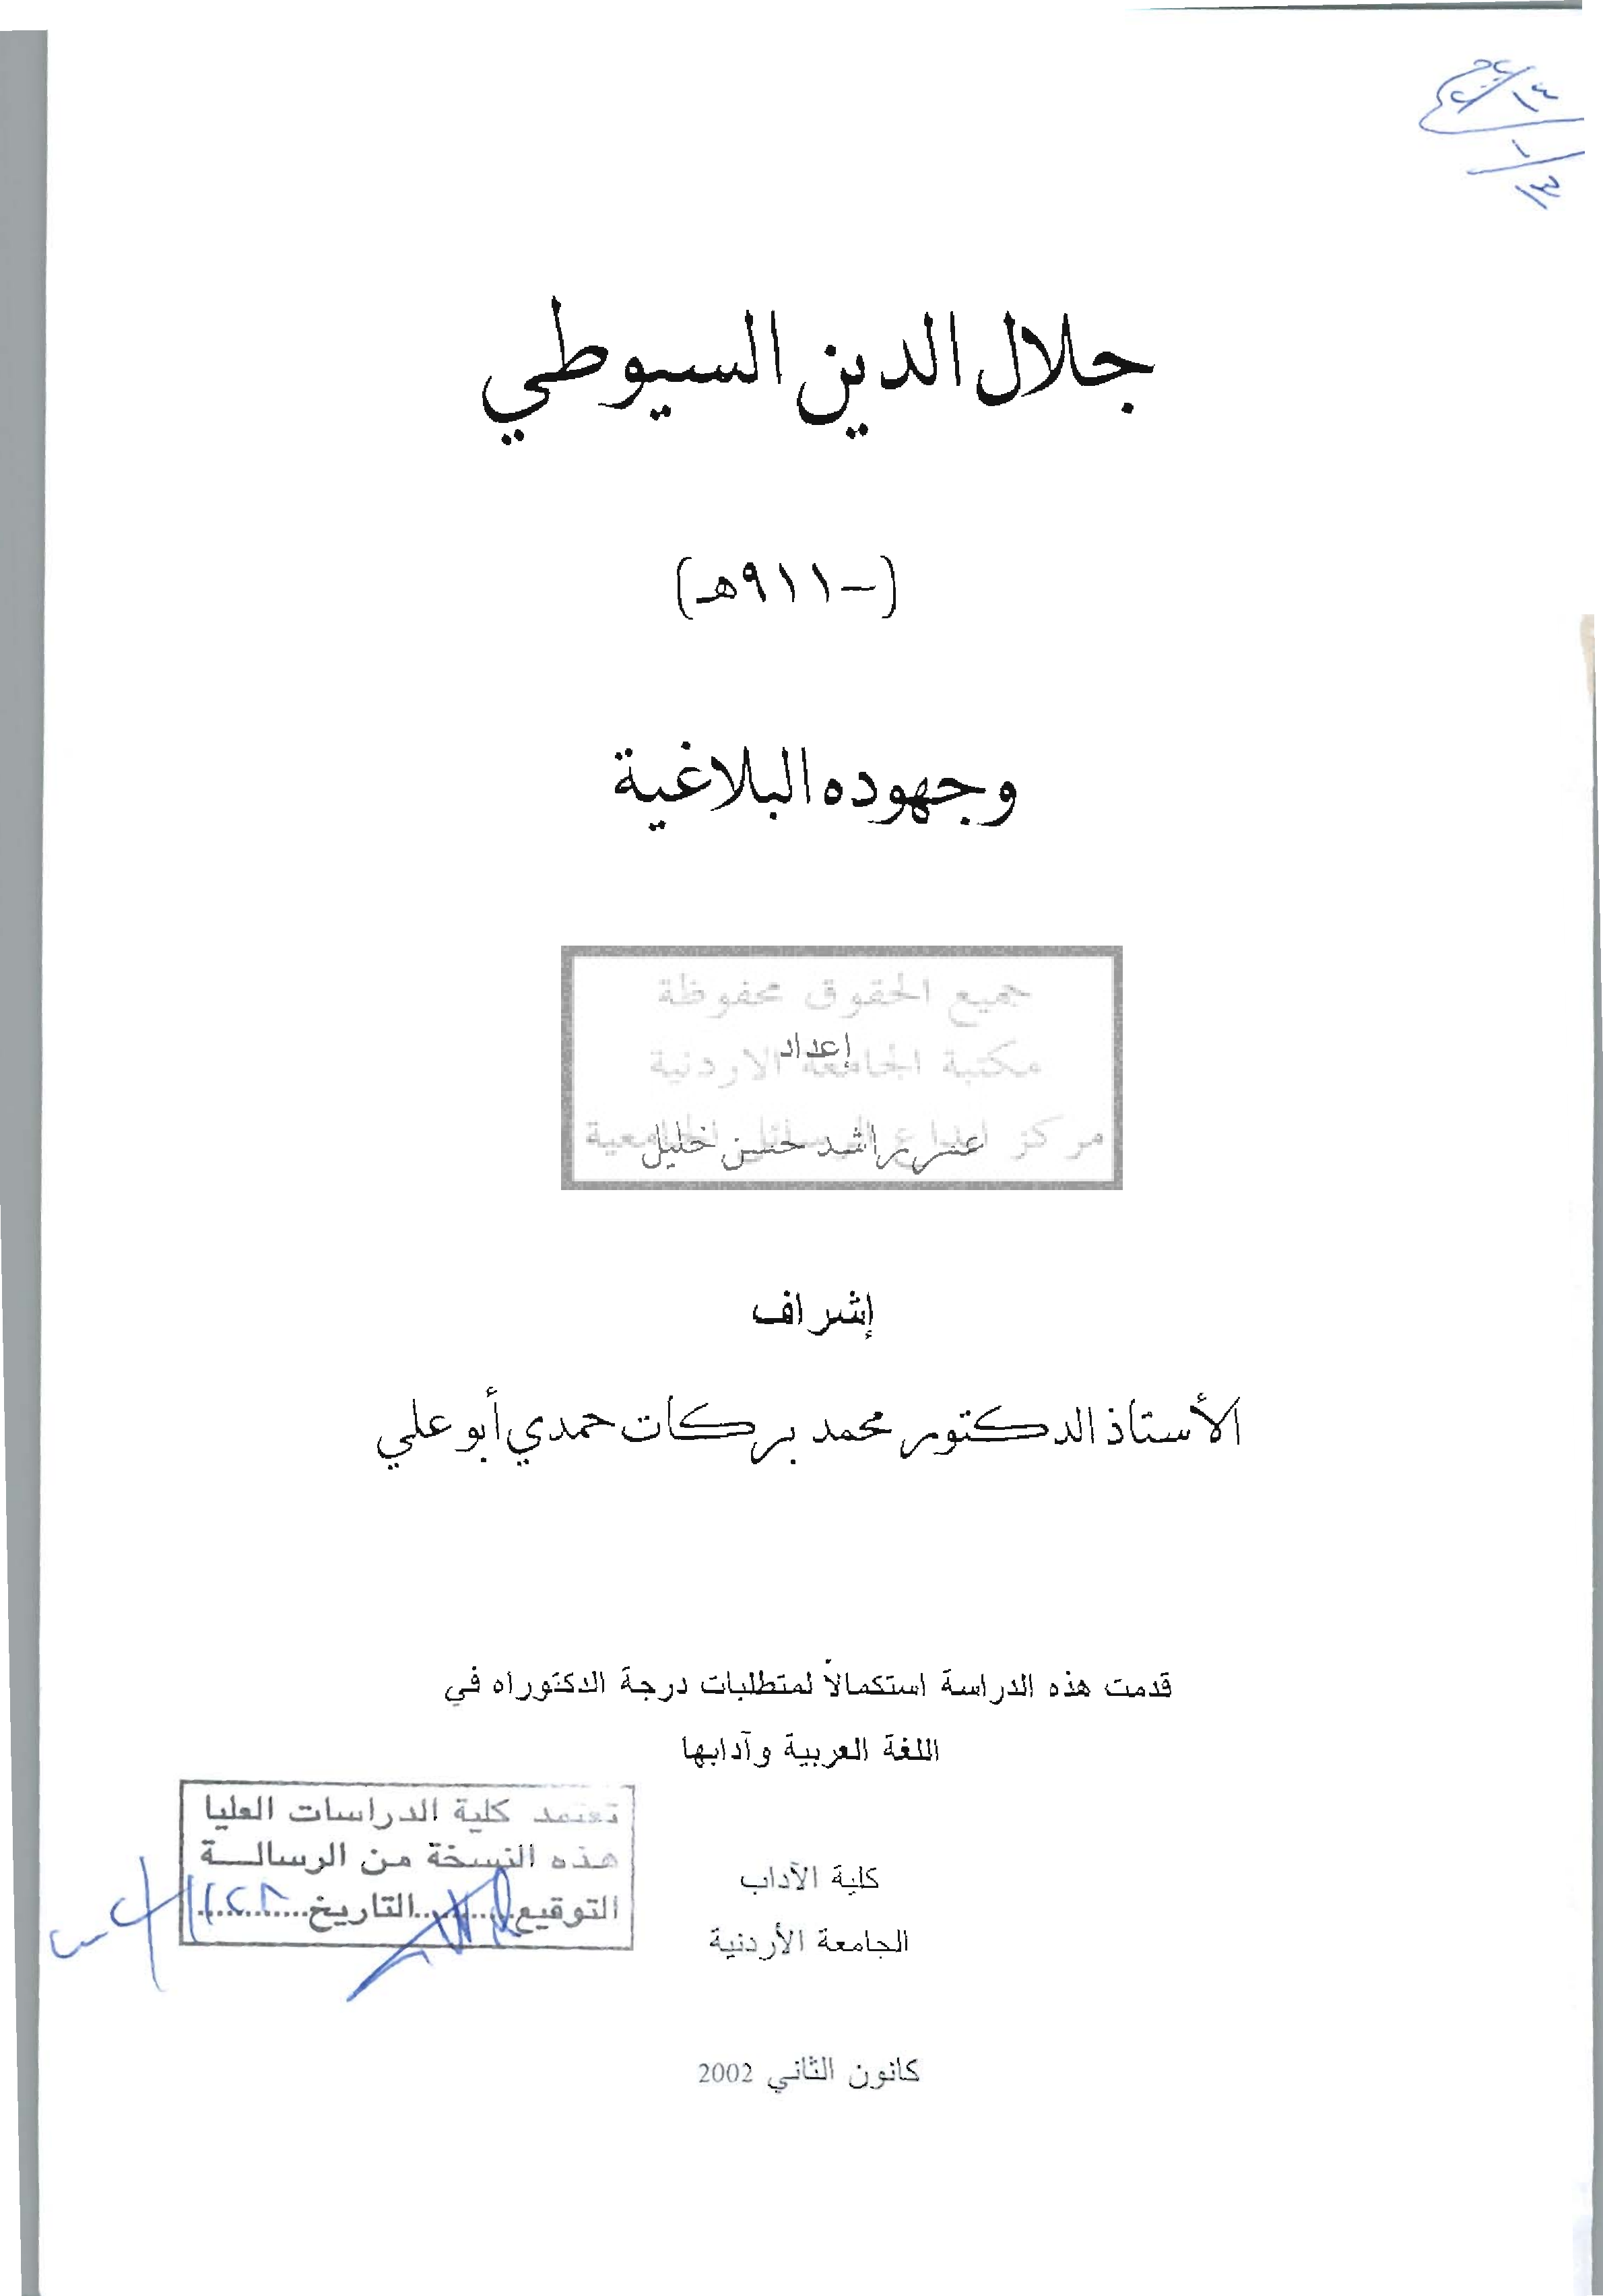 جلال الدين السيوطي
(–٩١١هـ)
وجهوده البلاغية
جميع الحقوق محفوظة
مكتبة الجامعة الاردنية
مركز ايداع الرسائل الجامعية
إعداد
عمر راشد حسن خليل
إشراف
الأستاذ الدكتور محمد بركات حمدي أبو علي
قدمت هذه الدراسة استكمالاً لمتطلبات درجة الدكتوراه في
اللغة العربية وآدابها
تعتمد كلية الدراسات العليا
هذه النسخة من الرسالـــة
التوقيع..........التاريخ............
كلية الآداب
الجامعة الأردنية
كانون الثاني 2002